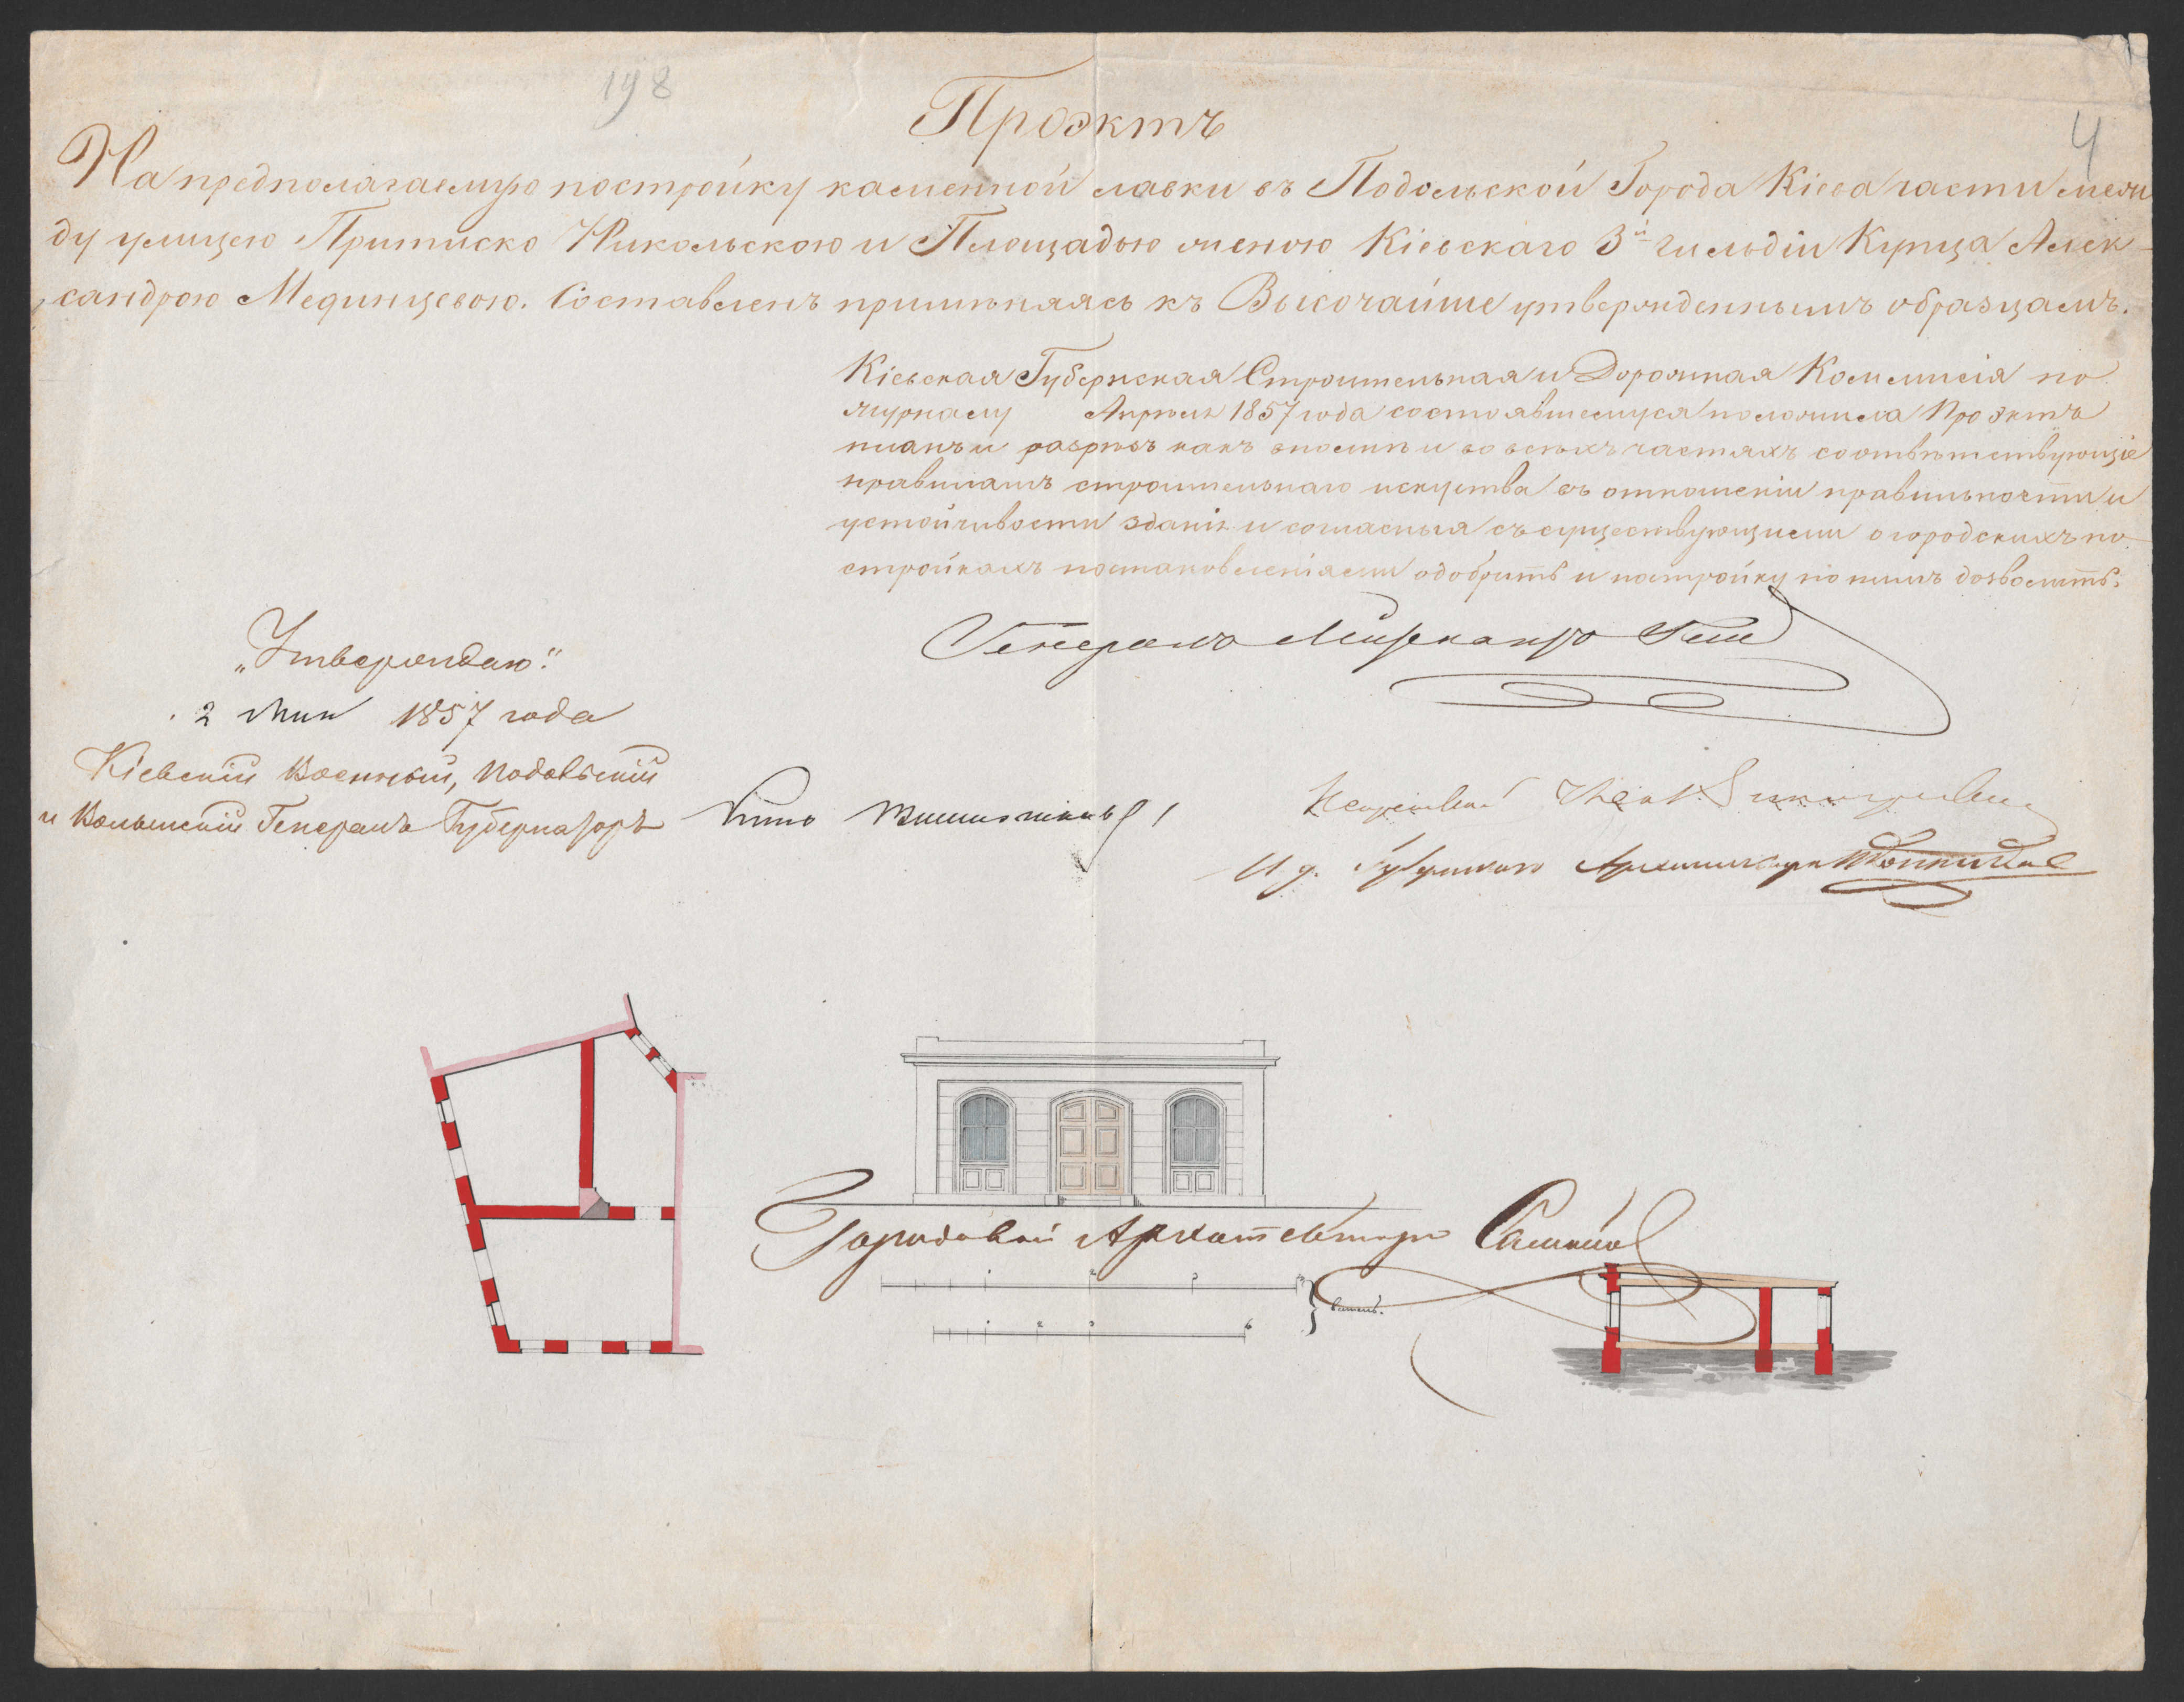 198
4
Проэктъ
На предполагаемую постройку каменной лавки въ Подольской Города Кіева части меж
ду улицею Притиско Никольскою и Площадью женою Кіевскаго 3й гильдіи Купца Алек-
сандрою Мединцевою. Составленъ примѣняясь къ Высочайше утвержденнымъ образцамъ.
Кіевская Губернская Строительная и Дорожная Коммисія по
журналу Апрѣля 1857 года состоявшемуся положила Проэктъ
планъ и разрѣзъ какъ вполнѣ и во всѣхъ частяхъ соотвѣтствующіе
правиламъ строительнаго искуства въ отношеніи правильности и
устойчивости зданія и согласныя съ существующими о городскихъ по-
стройкахъ постановленіями одобрить и постройку по нимъ дозволить.
Генералъ Лейтенантъ
„Утверждаю“
2 Мая 1857 года
Кіевскій Военный, Подольскій
и Волынскій Генералъ Губернаторъ
И д. Губернскаго Архитектора
Городовой Архитекторъ
1 2 3 4
1 2 3 6
саженъ.